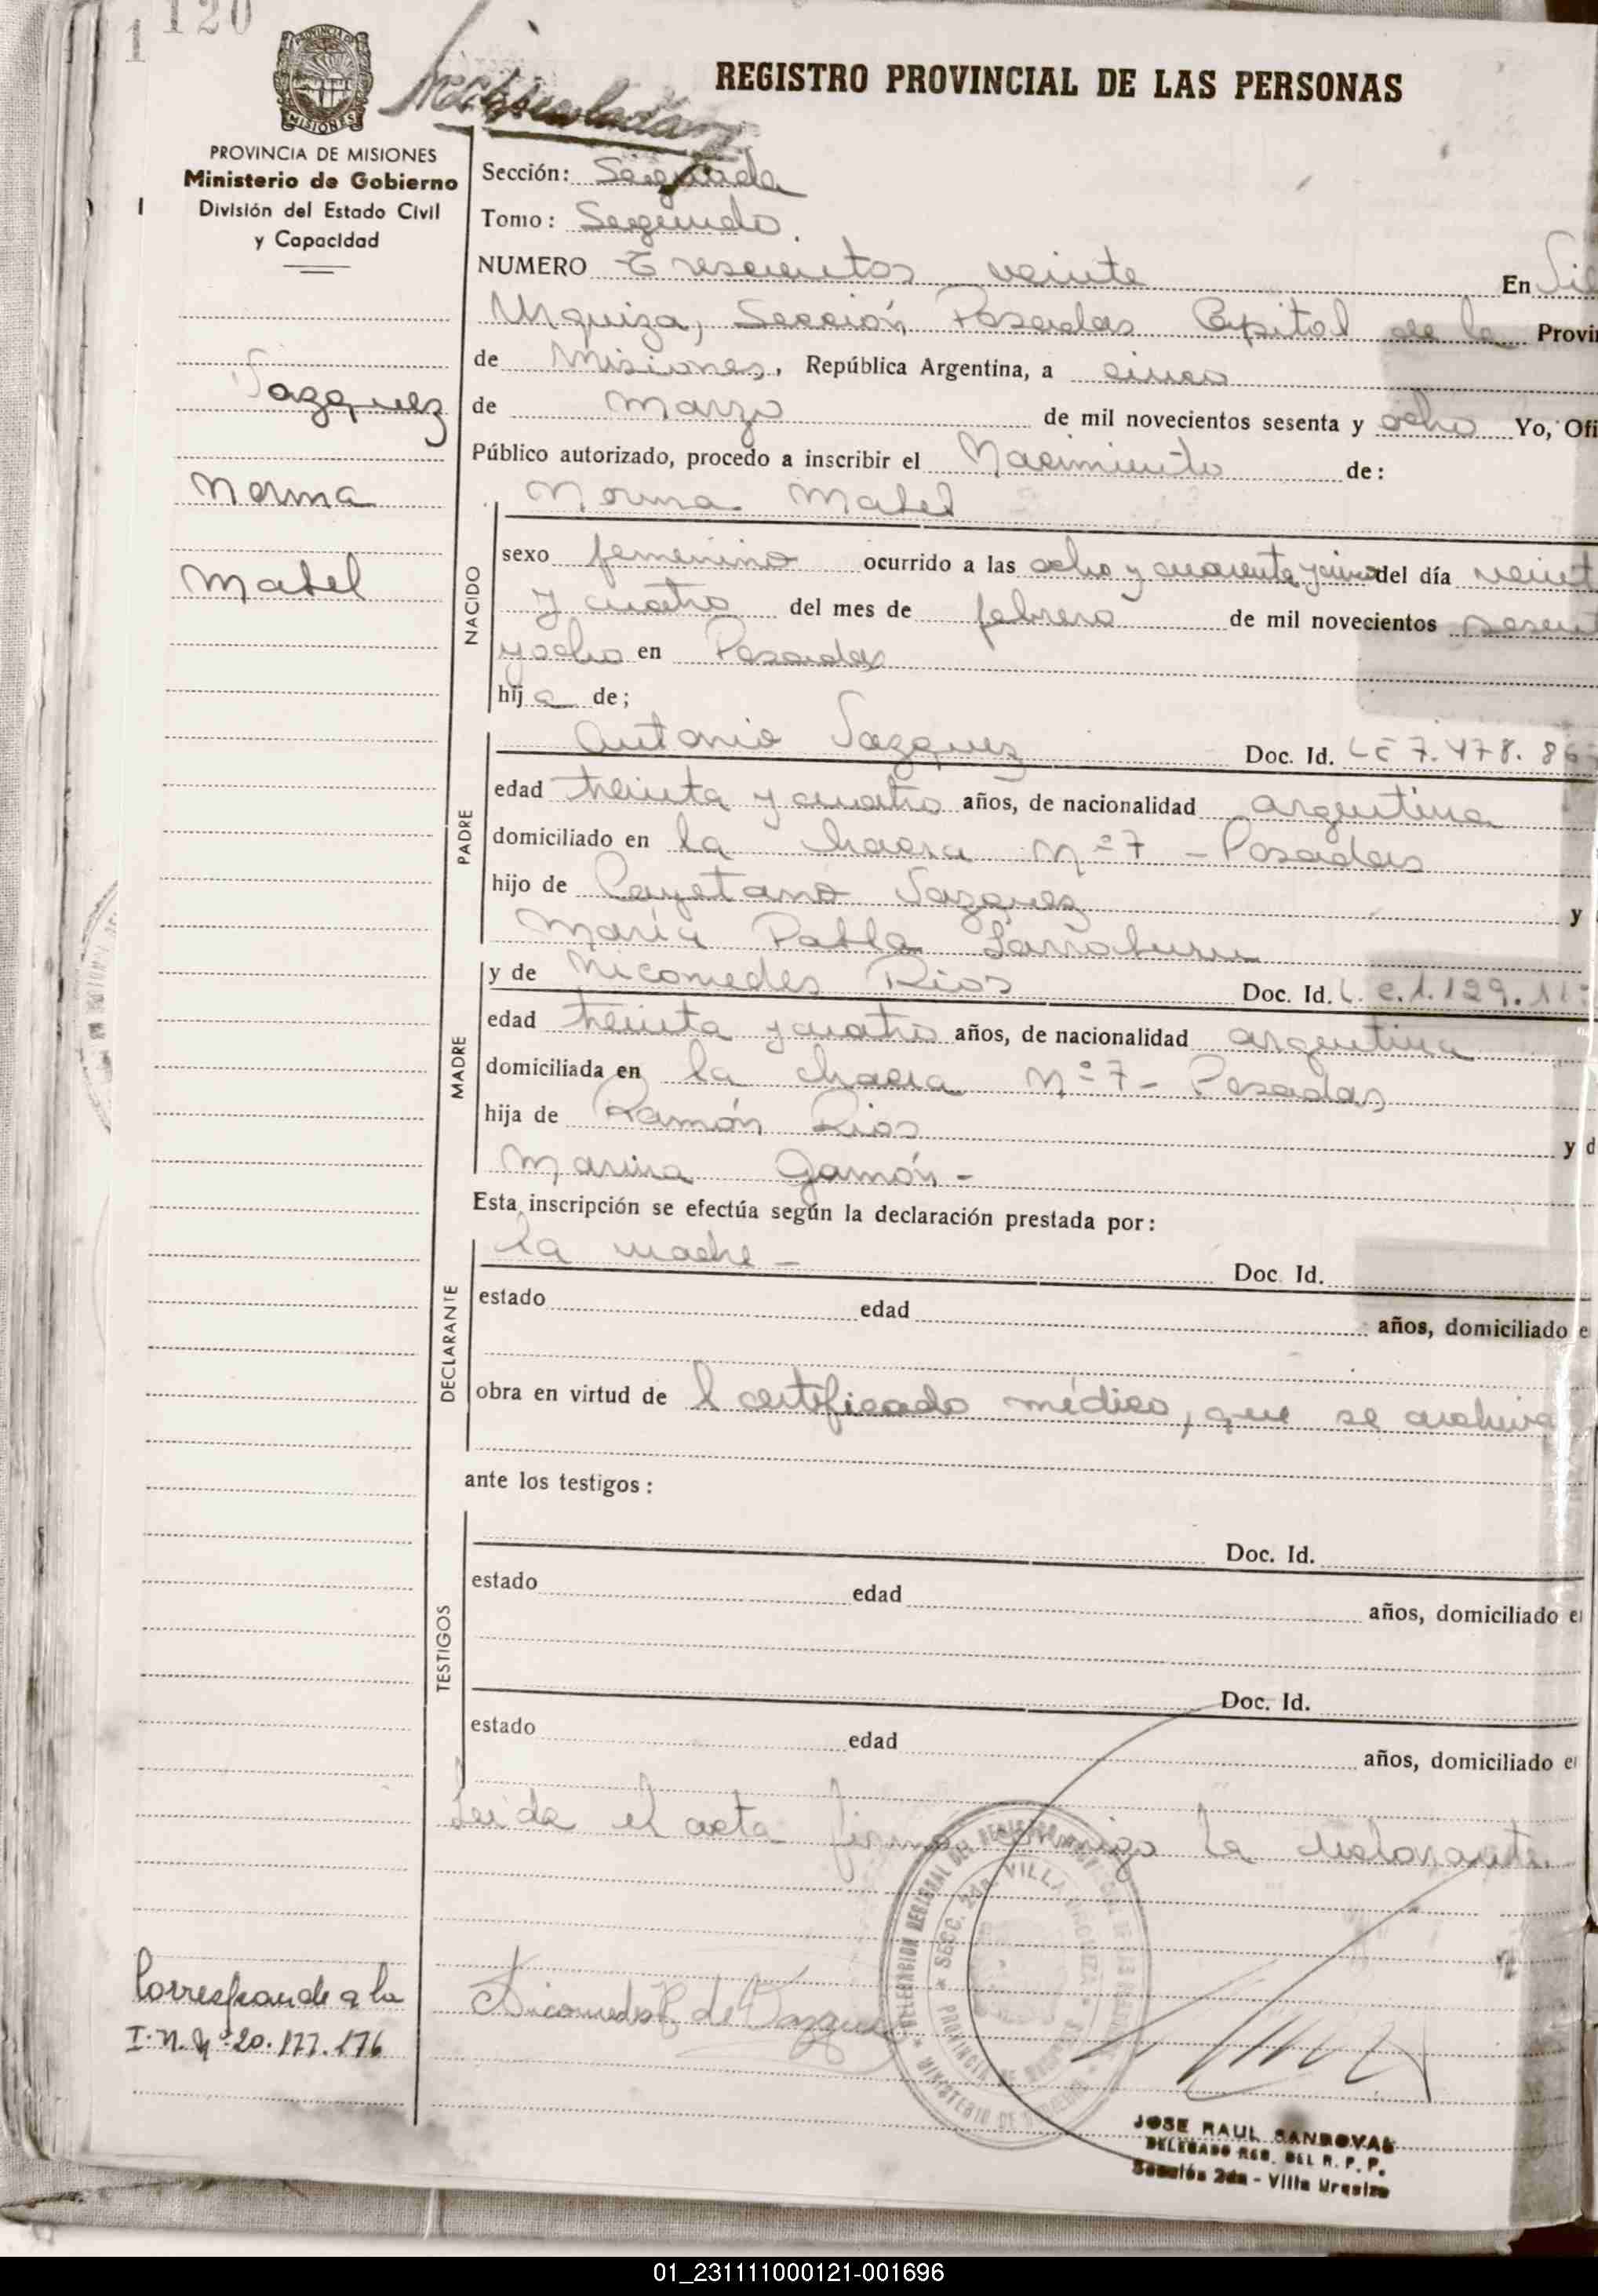 120
1
PROVINCIA DE
MISIONES
REGISTRO PROVINCIAL DE LAS PERSONAS
PROVINCIA DE MISIONES
Ministerio de Gobierno
División del Estado Civil
y Capacidad
Vazquez
Norma
Mabel
Sección: Segunda
Tomo: Segundo.
NUMERO Trescientos veinte En Vil
Urquiza, Sección Posadas Capital de la Provin
de Misiones, República Argentina, a cinco
de Marzo de mil novecientos sesenta y ocho Yo, Ofi
Público autorizado, procedo a inscribir el Nacimiento de:
NACIDO
Norma Mabel
sexo femenino ocurrido a las ocho y cuarenta y cinco del día veint
y cuatro del mes de febrero de mil novecientos sesent
y ocho en Posadas
hij a de;
PADRE
Antonio Vazquez Doc. Id. LE 7.478.86
edad treinta y cuatro años, de nacionalidad argentina
domiciliado en la chacra Nº 7 - Posadas
hijo de Cayetano Vazquez y
María Pabla Larraburu
MADRE
y de Nicomedes Rios Doc. Id. L. C. 1.129.11
edad treinta y cuatro años, de nacionalidad argentina
domiciliada en la chacra Nº 7 - Posadas
hija de Ramón Rios y d
Marina Gamón -
Esta inscripción se efectúa según la declaración prestada por:
DECLARANTE
la madre - Doc. Id.
estado edad años, domiciliado e
obra en virtud de l certificado médico, que se archiva
ante los testigos:
TESTIGOS
Doc. Id.
estado edad años, domiciliado e
Doc. Id.
estado edad años, domiciliado e
Leída el acta firma conmigo la declarante.
DELEGACION REGIONAL DEL REGISTRO
SECC. 2da. VILLA URQUIZA
PROVINCIA DE MISIONES
MINISTERIO DE GOBIERNO
Nicomedes R de Vazquez
Corresponde a la
I.N.Nº 20.177.176
JOSE RAUL SANDOVAL
DELEGADO REG. DEL R. P. P.
Sección 2da - Villa Urquiza
01_231111000121-001696